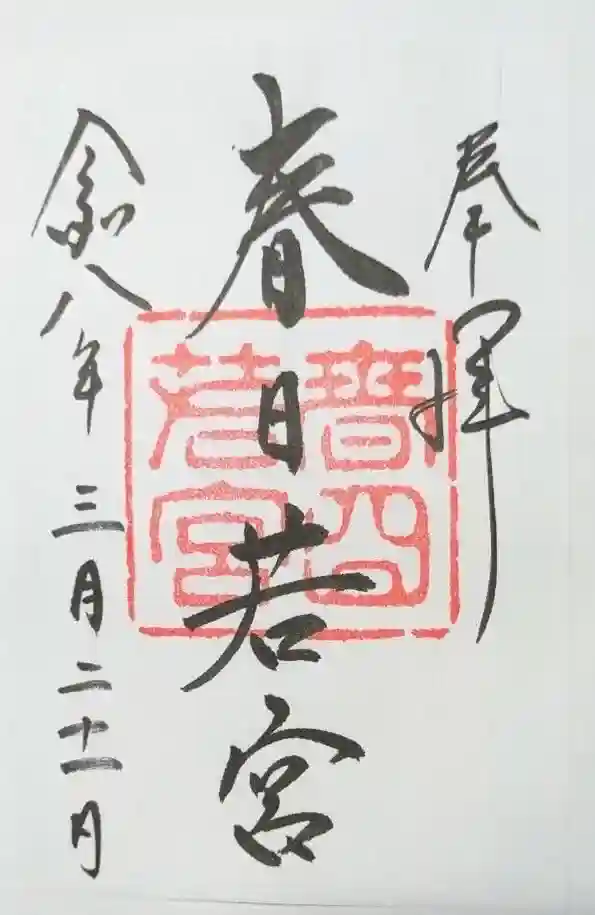 奉拝
春日若宮
令和八年 三月二十一日
春日
若宮